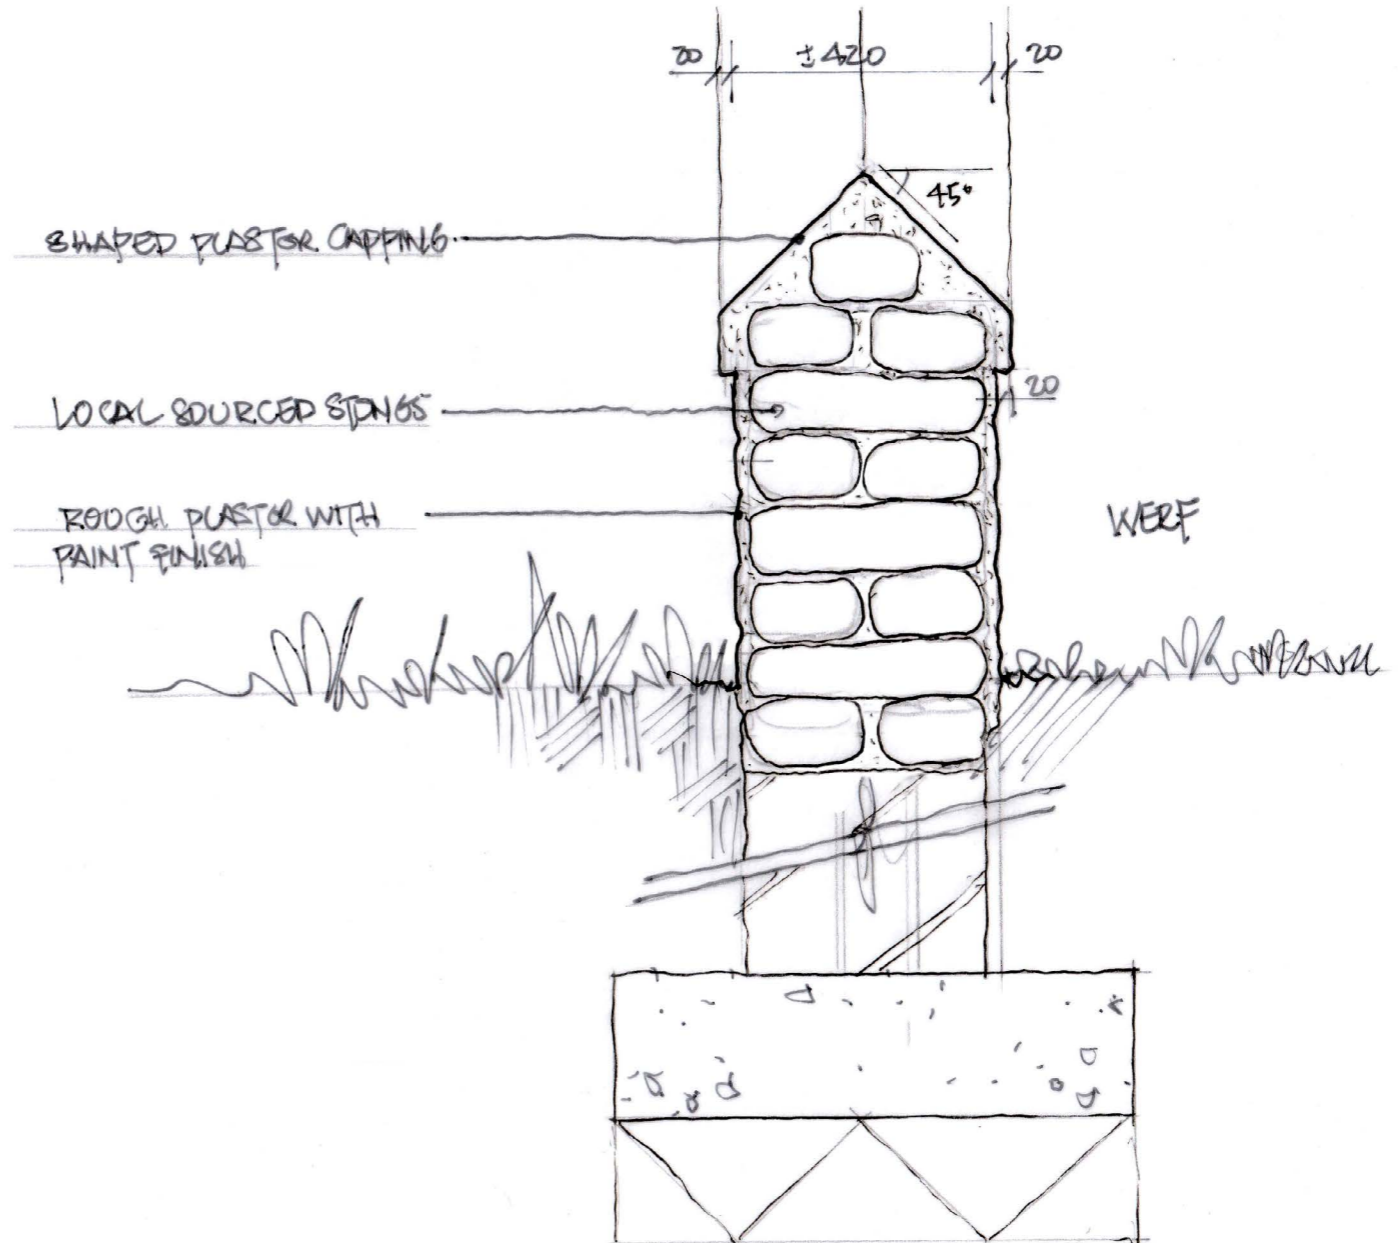 20 ±420 20
45°
SHAPED PLASTER CAPPING
20
LOCAL SOURCED STONES
ROUGH PLASTER WITH
PAINT FINISH
WERF